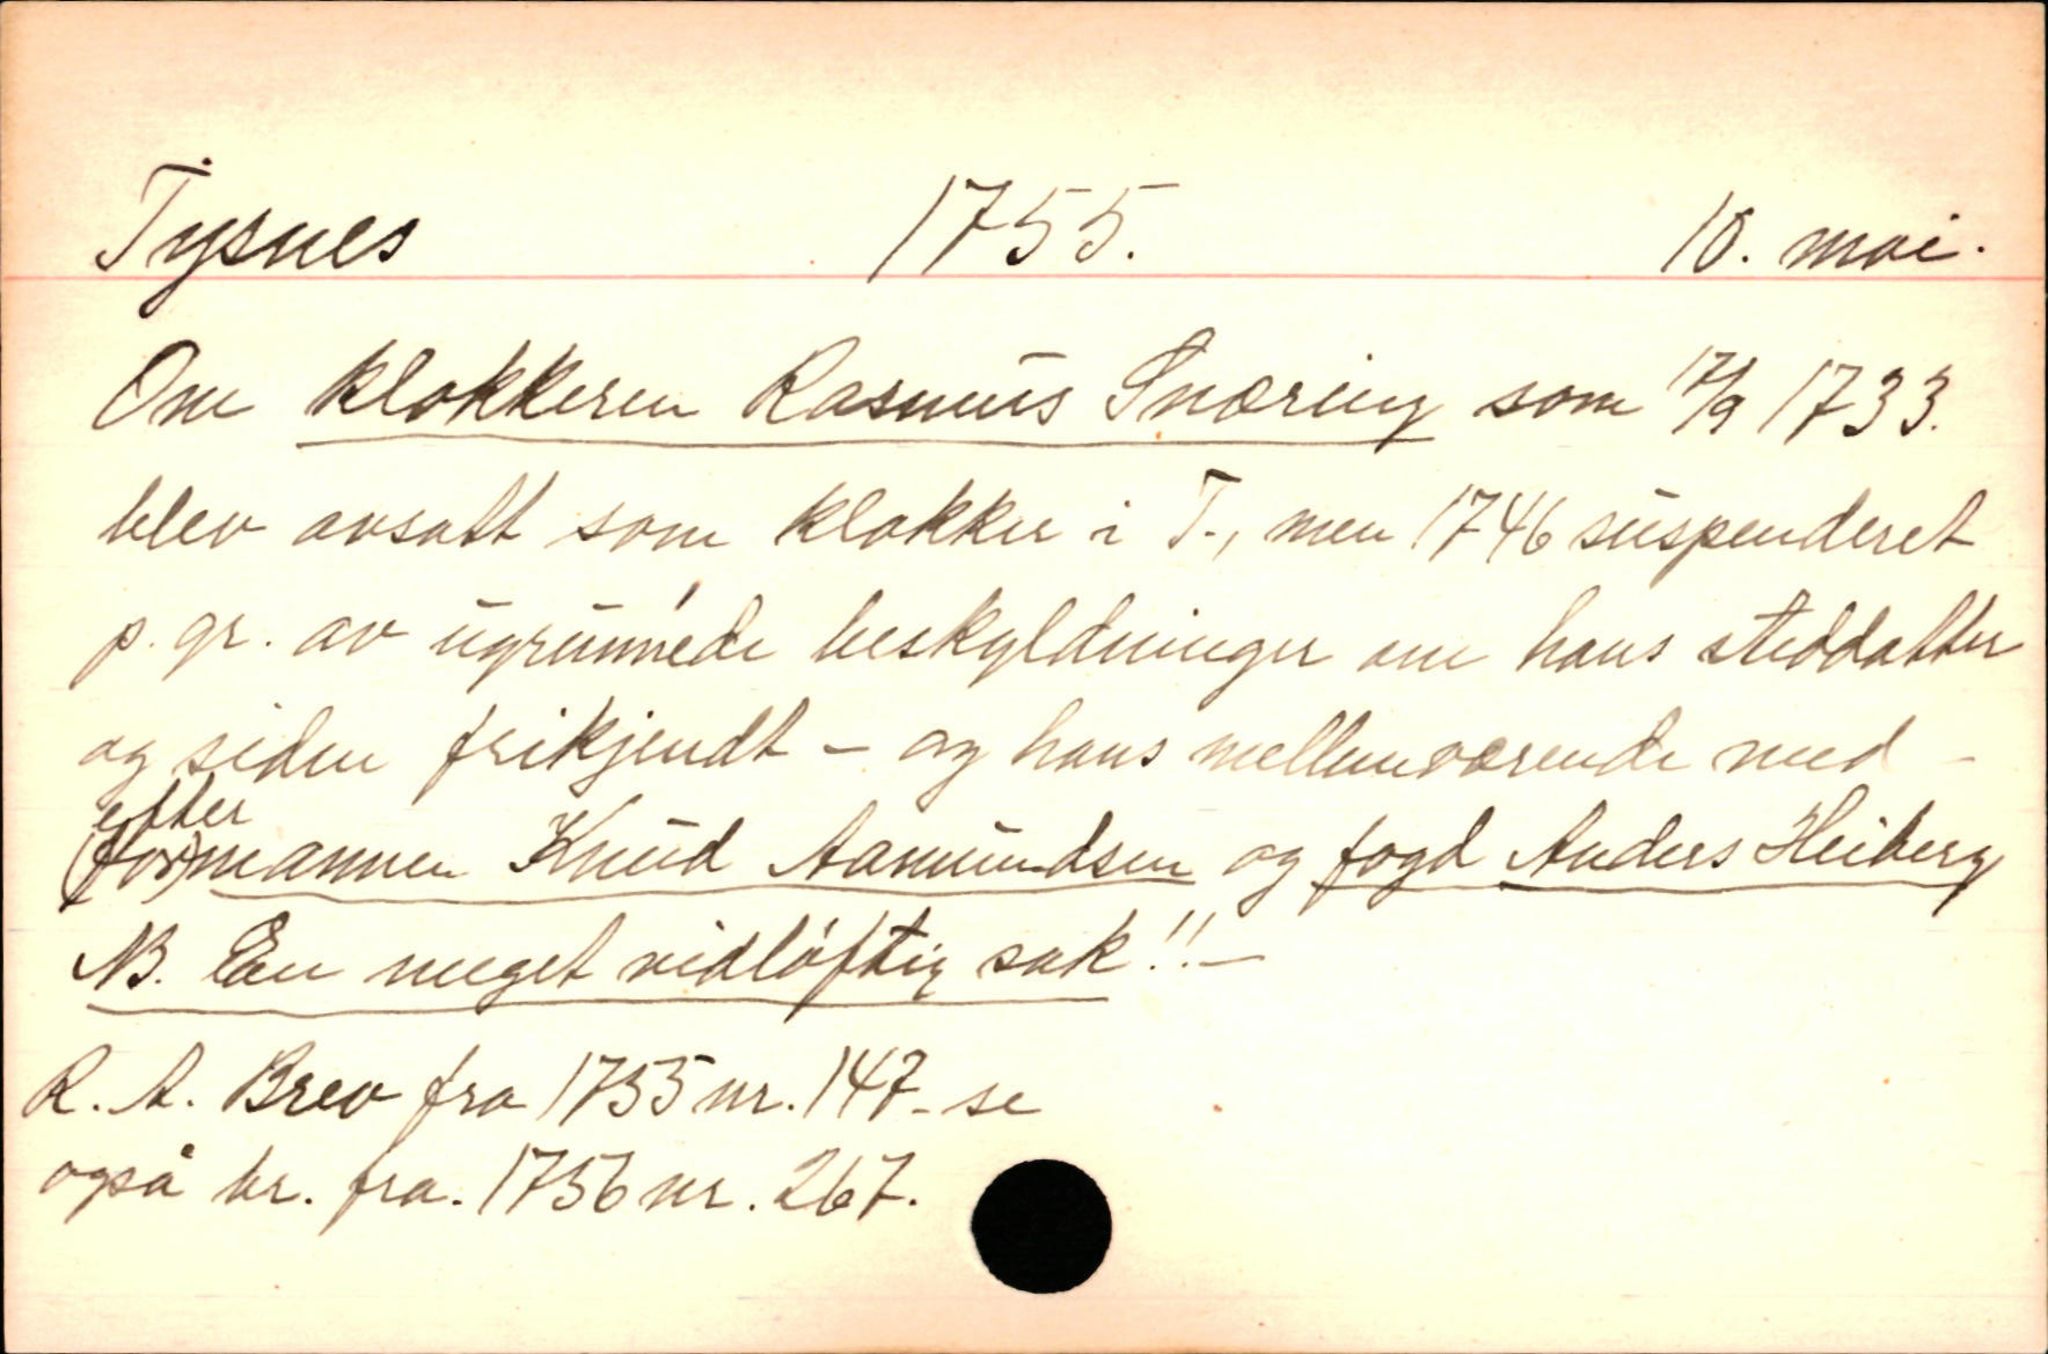 Tysnes 1755. 10. mai.
Om klokkeren Rasmus Snæring som 17/9 1733.
blev avsatt som klokker i T., men 1746 suspenderet
p. gr. av ugrunnede beskyldninger om hans steddatter
og siden frikjendt - og hans mellemværende med -
efter
(for)mannen Knud Aamundsen og fogd Anders Heiberg
NB. En meget vidløftig sak!! -
R. A. Brev fra 1755 nr. 147 - se
også br. fra. 1756 nr. 267.